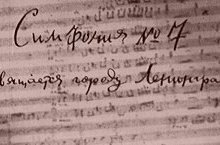 Симфония № 7
вящается городу Ленингра